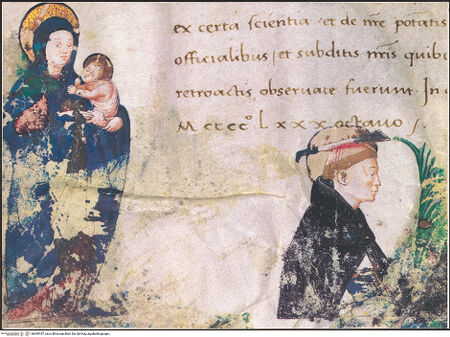 ex certa scientia et de nr̄e potatis
officialibus / et subditis nr̄is quibu
retroactis observate fuerunt. In
Mcccc°. Lxxxoctavo /.